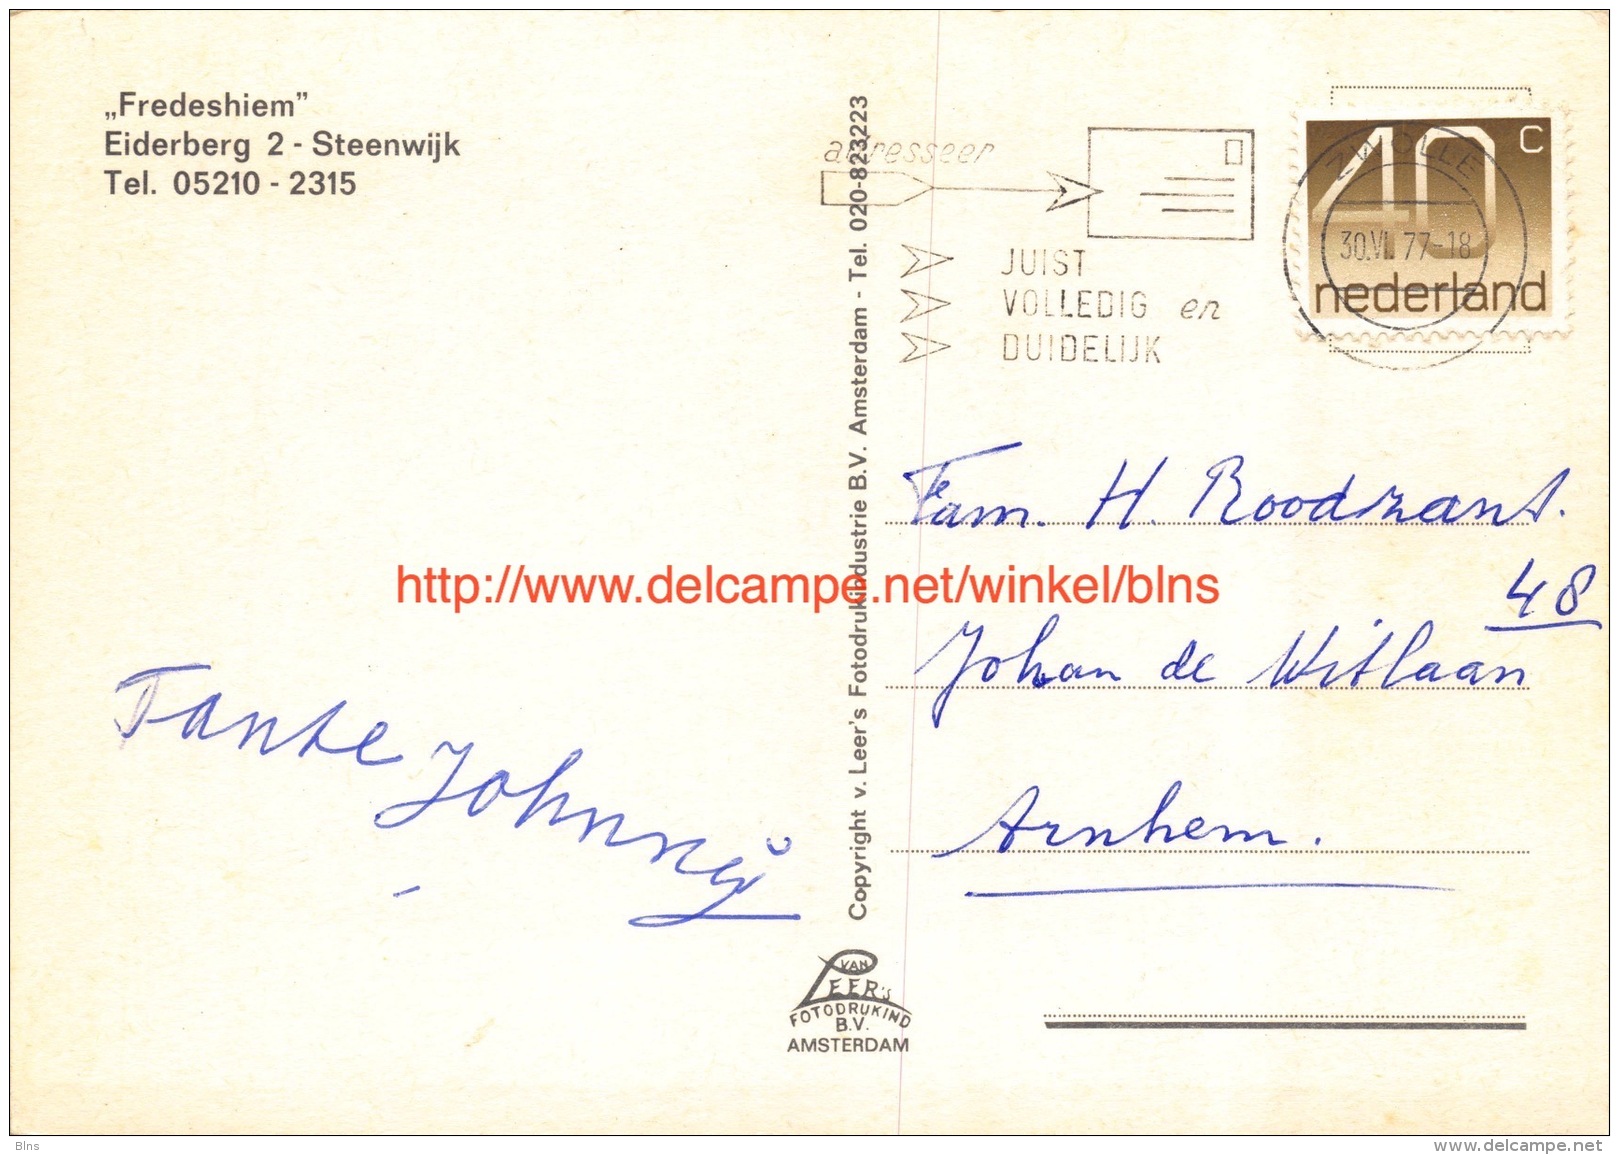 „Fredeshiem”
Eiderberg 2 - Steenwijk
Tel. 05210 - 2315
adresseer
JUIST
VOLLEDIG en
DUIDELIJK
ZWOLLE
30.VI.77-18
40 c
nederland
Copyright v. Leer's Fotodrukindustrie B.V. Amsterdam - Tel. 020-823223
Fam. H. Roodzant.
48
Johan de Witlaan
Arnhem.
http://www.delcampe.net/winkel/blns
Tante Johnny
VAN
LEER's
FOTODRUKIND
B.V.
AMSTERDAM
Blns
www.delcampe.net